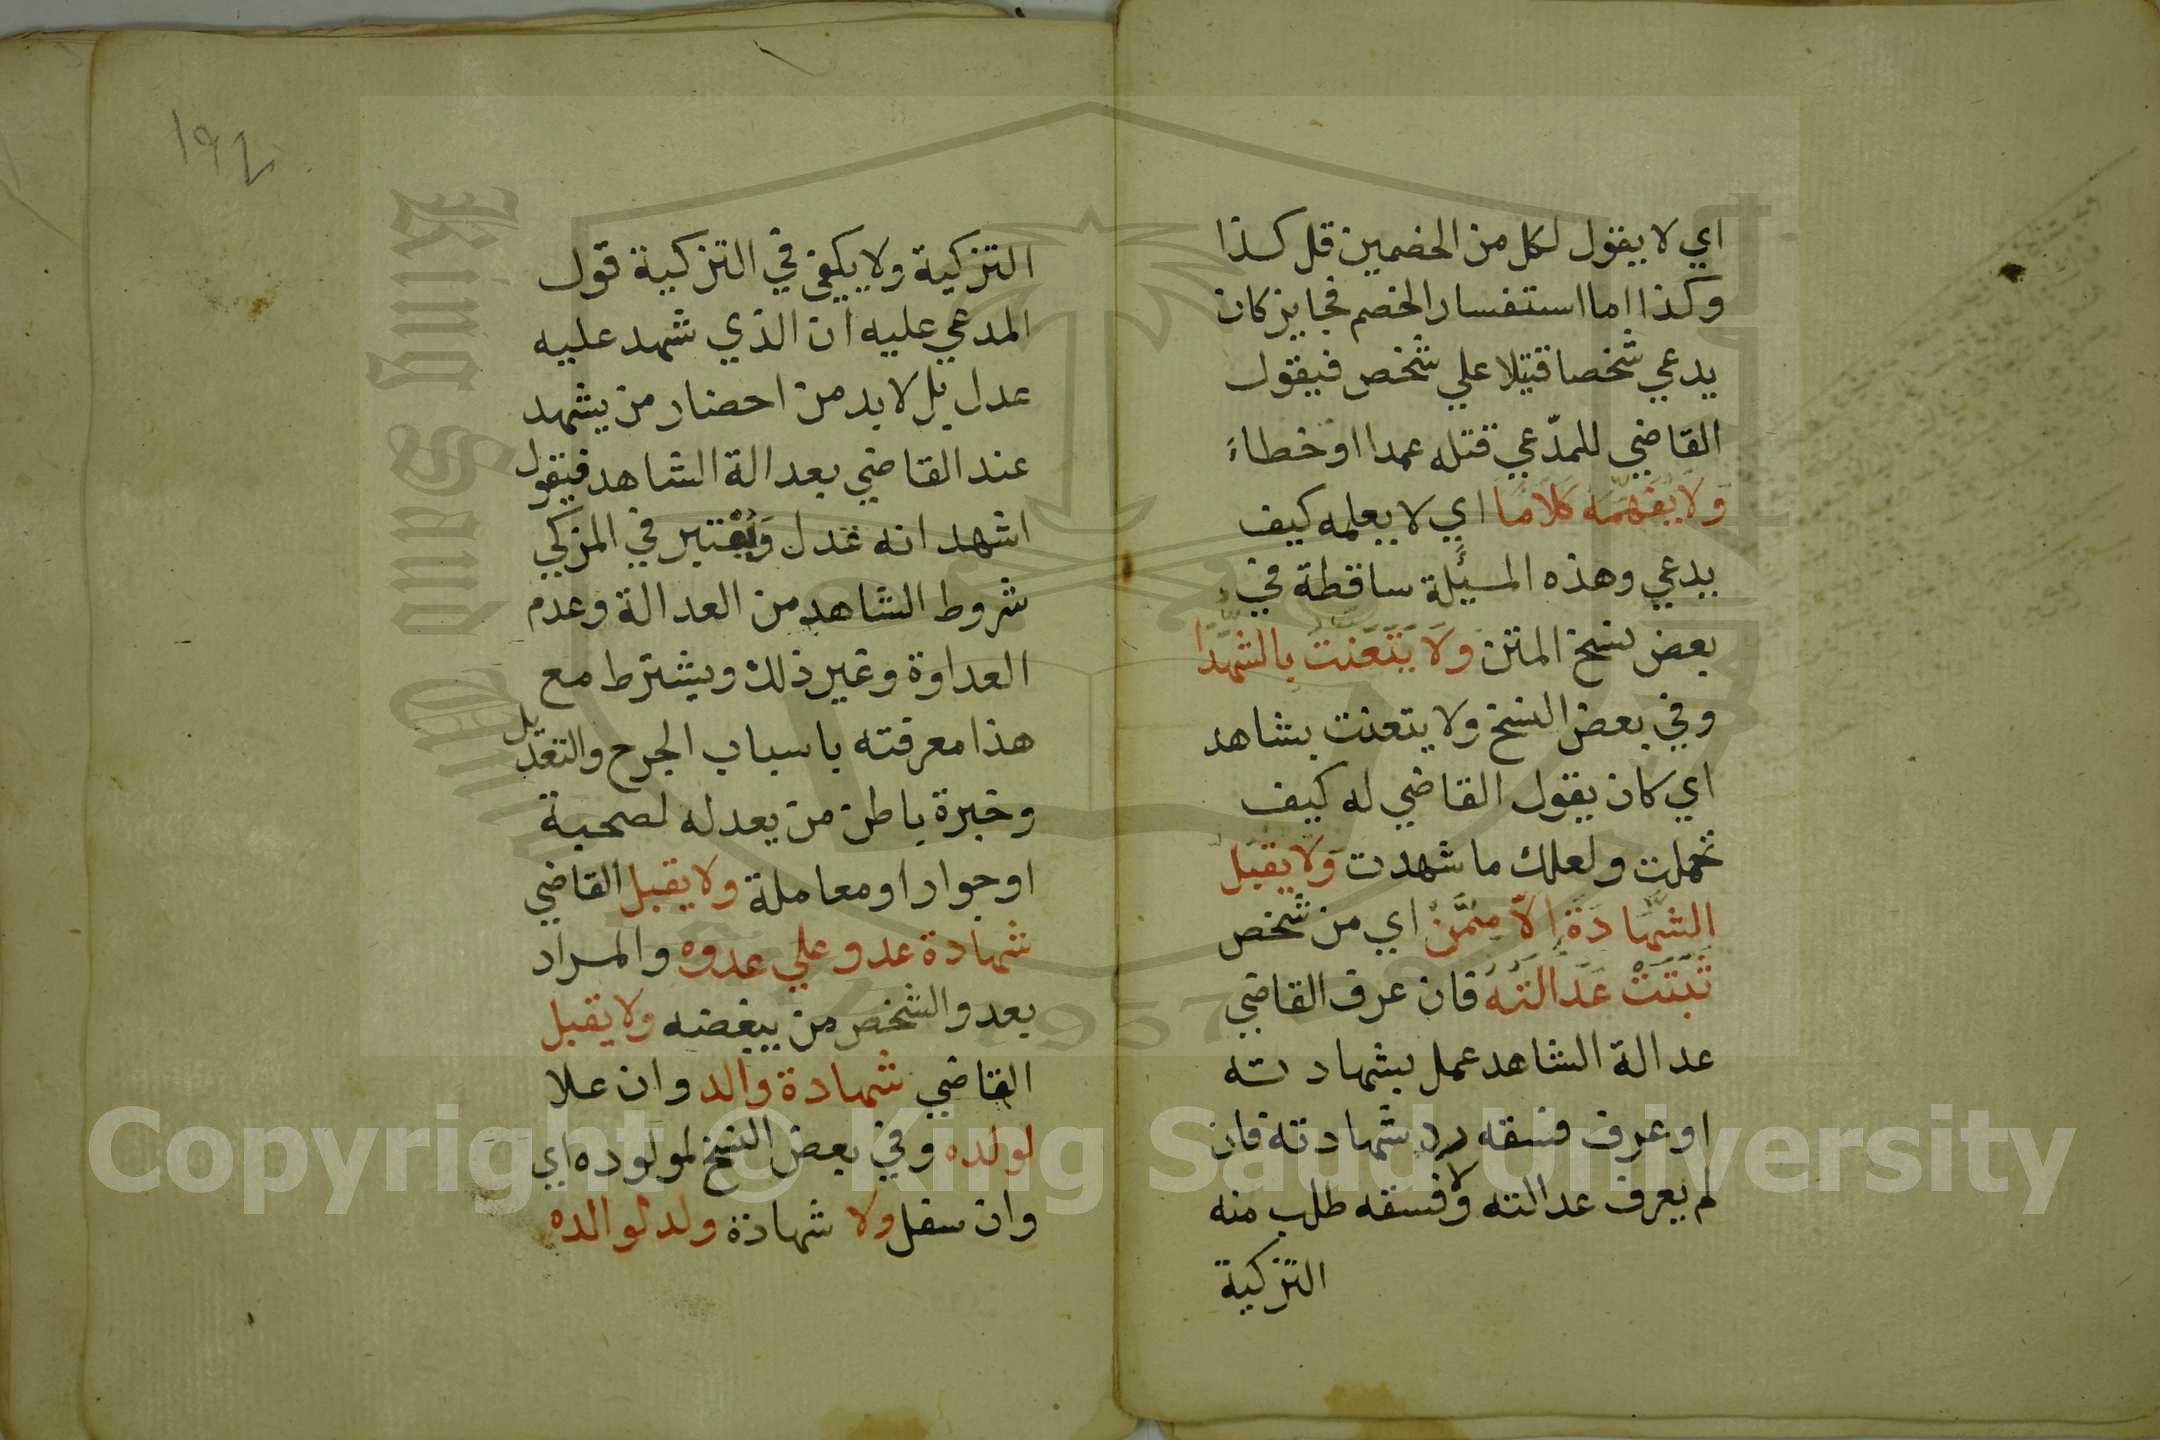 اي لا يقول لكل من الخصمين قل كذا
وكذا اما استفسار الخصم فجايز كان
يدعي شخصا قتيلا علي شخص فيقول
القاضي للمدّعي قتله عمدا او خطاء
وَلَا يُفَهِّمَهُ كَلَامًا اي لا يعلمه كيف
يدعي وهذه المسئلة ساقطة في
بعض نسخ المتن وَلَا يَتَعَنَّتُ بِالشُّهَّدَا
وفي بعض النسخ ولا يتعنت بشاهد
اي كان يقول القاضي له كيف
تحملت ولعلك ما شهدت وَلَا يَقبَلُ
الشَّهَادَةَ الَّا مِمَّنْ اي من شخص
ثَبَتَتْ عَدَالَتُهُ فان عرف القاضي
عدالة الشاهد عمل بشهادته
او عرف فسقه رد شهادته فان
لم يعرف عدالته ولا فسقه طلب منه
التزكية
١٩٤
التزكية ولا يكفي في التزكية قول
المدعي عليه ان الذي شهد عليه
عدل بل لا بد من احضار من يشهد
عند القاضي بعدالة الشاهد فيقول
اشهد انه عدل وَيُعْتبر في المزكي
شروط الشاهد من العدالة وعدم
العداوة وغير ذلك ويشترط مع
هذا معرفته باسباب الجرح والتعديل
وخبرة باطن من يعدله لصحبة
او جوار او معاملة ولا يقبل القاضي
شهادة عدو علي عدوه والمراد
بعدو الشخص من يبغضه ولا يقبل
القاضي شهادة والد وان علا
لولده وفي بعض النسخ لمولوده اي
وان سفل ولا شهادة ولد لوالده
King Saud University
1957
Copyright © King Saud University